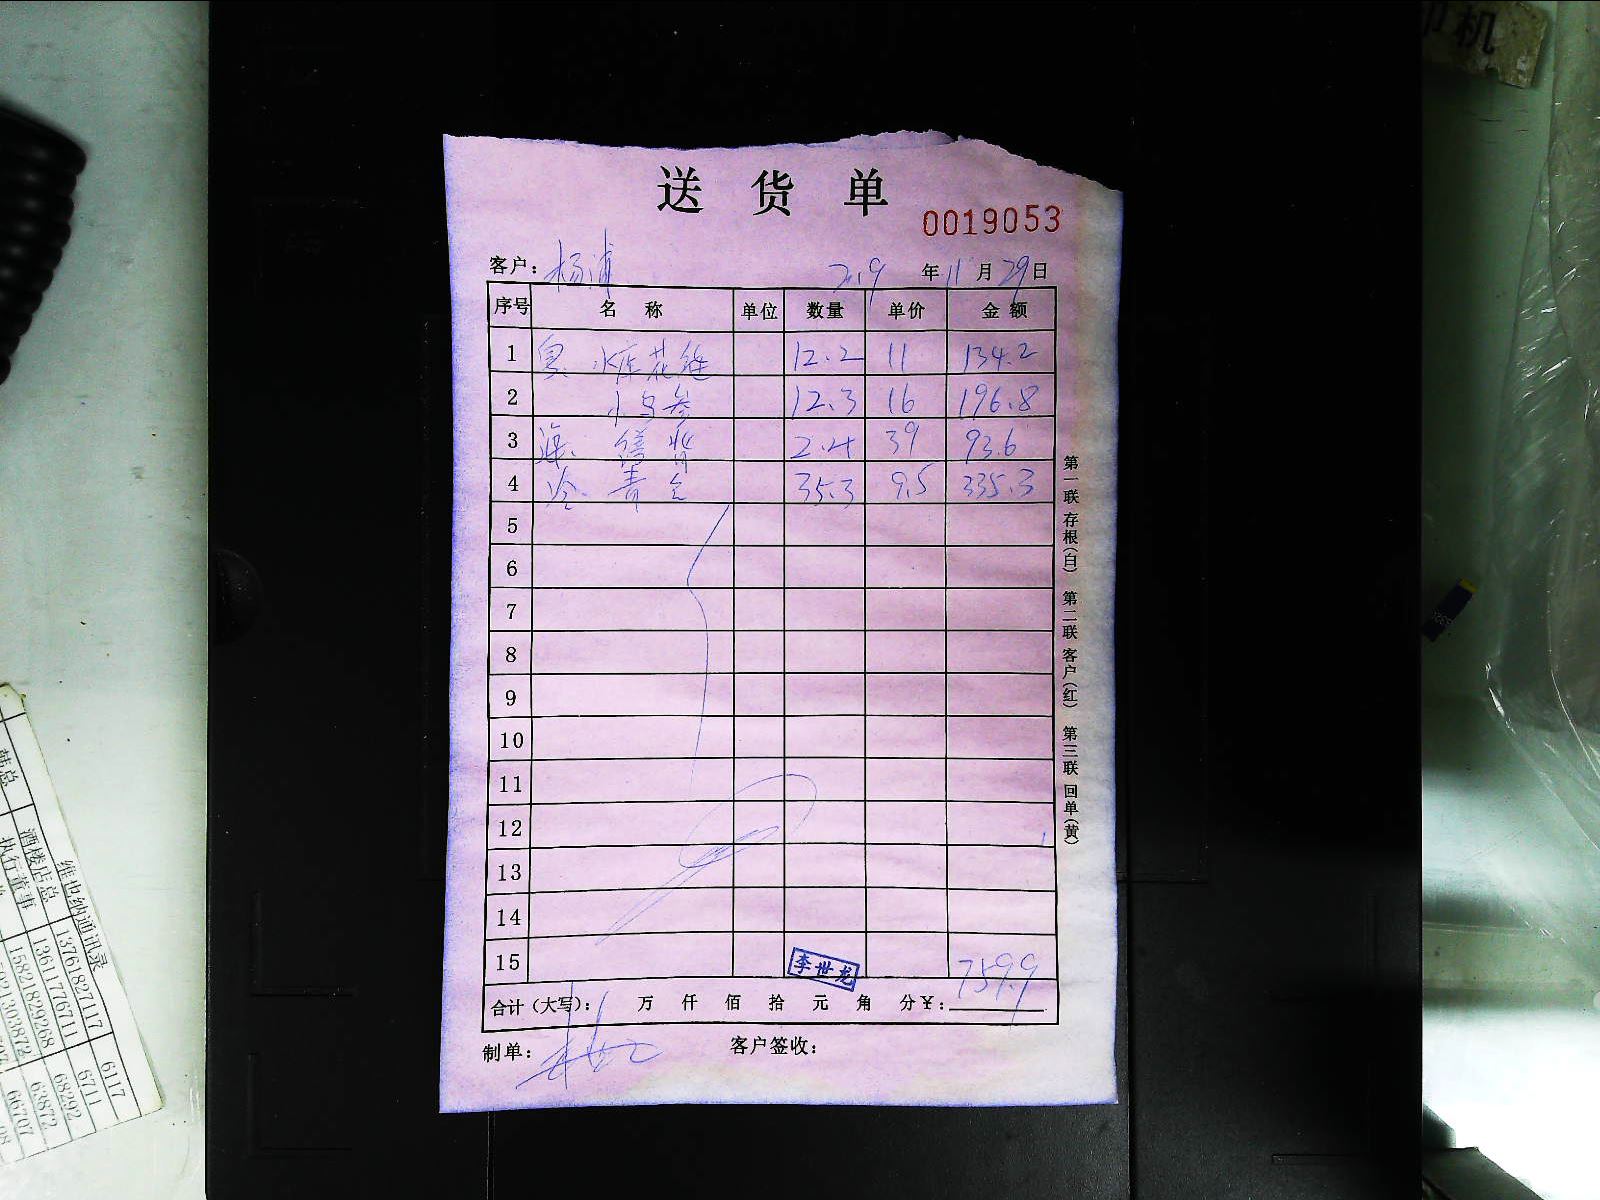 印机
送货单
0019053
客户：杨浦 2019年11月29日
序号 名称 单位 数量 单价 金额
1 水库花鲢 12.2 11 134.2
2 小乌参 12.3 16 196.8
3 海. 2.4 39 93.6
4 冷. 青 35.3 9.5 335.3
5
6
7
8
9
10
11
12
13
14
15
李世龙
759.9
合计（大写）： 万 仟 佰 拾 元 角 分￥：
制单： 客户签收：
第一联 存根（白） 第二联 客户（红） 第三联 回单（黄）
维也纳通讯录
韩总
酒楼店总 13761827117 6117
执行董事 13611776711 6711
15821829268 68292
63872
66707